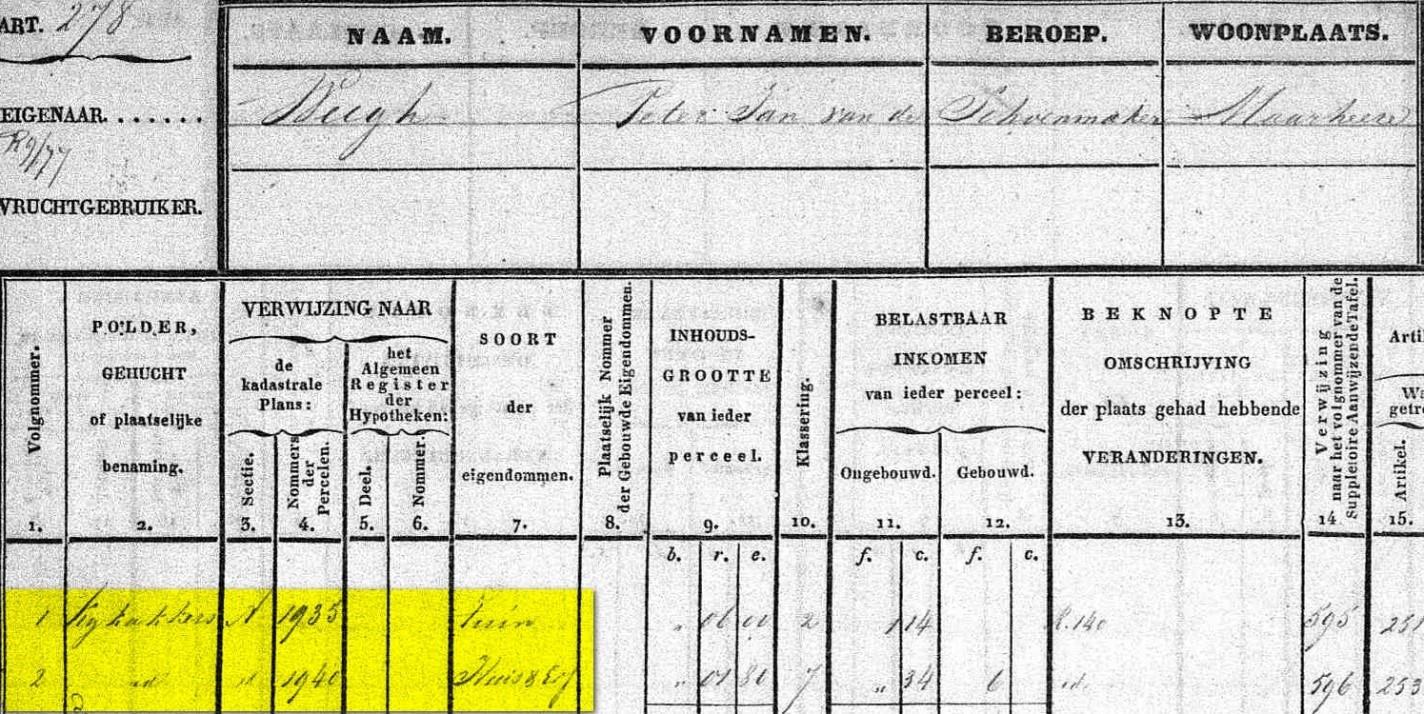 ART. 278
NAAM. VOORNAMEN. BEROEP. WOONPLAATS.
EIGENAAR.......
Peter Jan van de Schoenmaker Maarheeze
R9/77
VRUCHTGEBRUIKER.
Volgnommer.
1.
POLDER,
GEHUCHT
of plaatselijke
benaming.
2.
VERWIJZING NAAR
de
kadastrale
Plans:
Sectie.
3.
Nommers
der
Percelen.
4.
het
Algemeen
Register
der
Hypotheken:
Deel.
5.
Nommer.
6.
SOORT
der
eigendommen.
7.
Plaatselijk Nommer
der Gebouwde Eigendommen.
8.
INHOUDS-
GROOTTE
van ieder
perceel.
9.
Klassering.
10.
BELASTBAAR
INKOMEN
van ieder perceel:
Ongebouwd.
11.
Gebouwd.
12.
BEKNOPTE
OMSCHRIJVING
der plaats gehad hebbende
VERANDERINGEN.
13.
Verwijzing
naar het volgnommer van de
Suppletoire Aanwijzende Tafel.
14
Arti
Wa
getr
Artikel.
15.
b. r. e. f. c. f. c.
1 Kykakkers A 1935 Tuin " 06 00 2 1 14 R.140 595 251
2 id id 1940 Huis & Erf " 01 80 7 " 34 6 id. 596 253